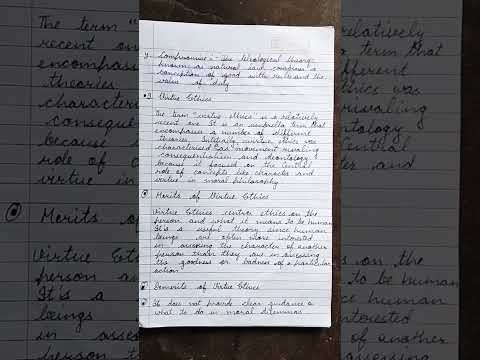 Compromise :- The teleological theory
known as natural law combines a
conception of good with rules and the
value of duty
Virtue Ethics
The term "virtue ethics is a relatively
recent one. It is an umbrella term that
encompasses a number of different
theories. Initially, virtue ethics was
characterised as "movement rivaling
consequentialism and deontology
because it focused on the central
role of concepts like character and
virtue in moral philosophy.
Merits of Virtue Ethics
Virtue Ethics centres ethics on the
person and what it means to be human
It's is a useful theory since human
beings are often more interested
in assessing the character of another
person than they are in assessing
the goodness or badness of a particular
action
Demerits of Virtue Ethics
It does not provide clear guidance on
what to do in moral dilemmas